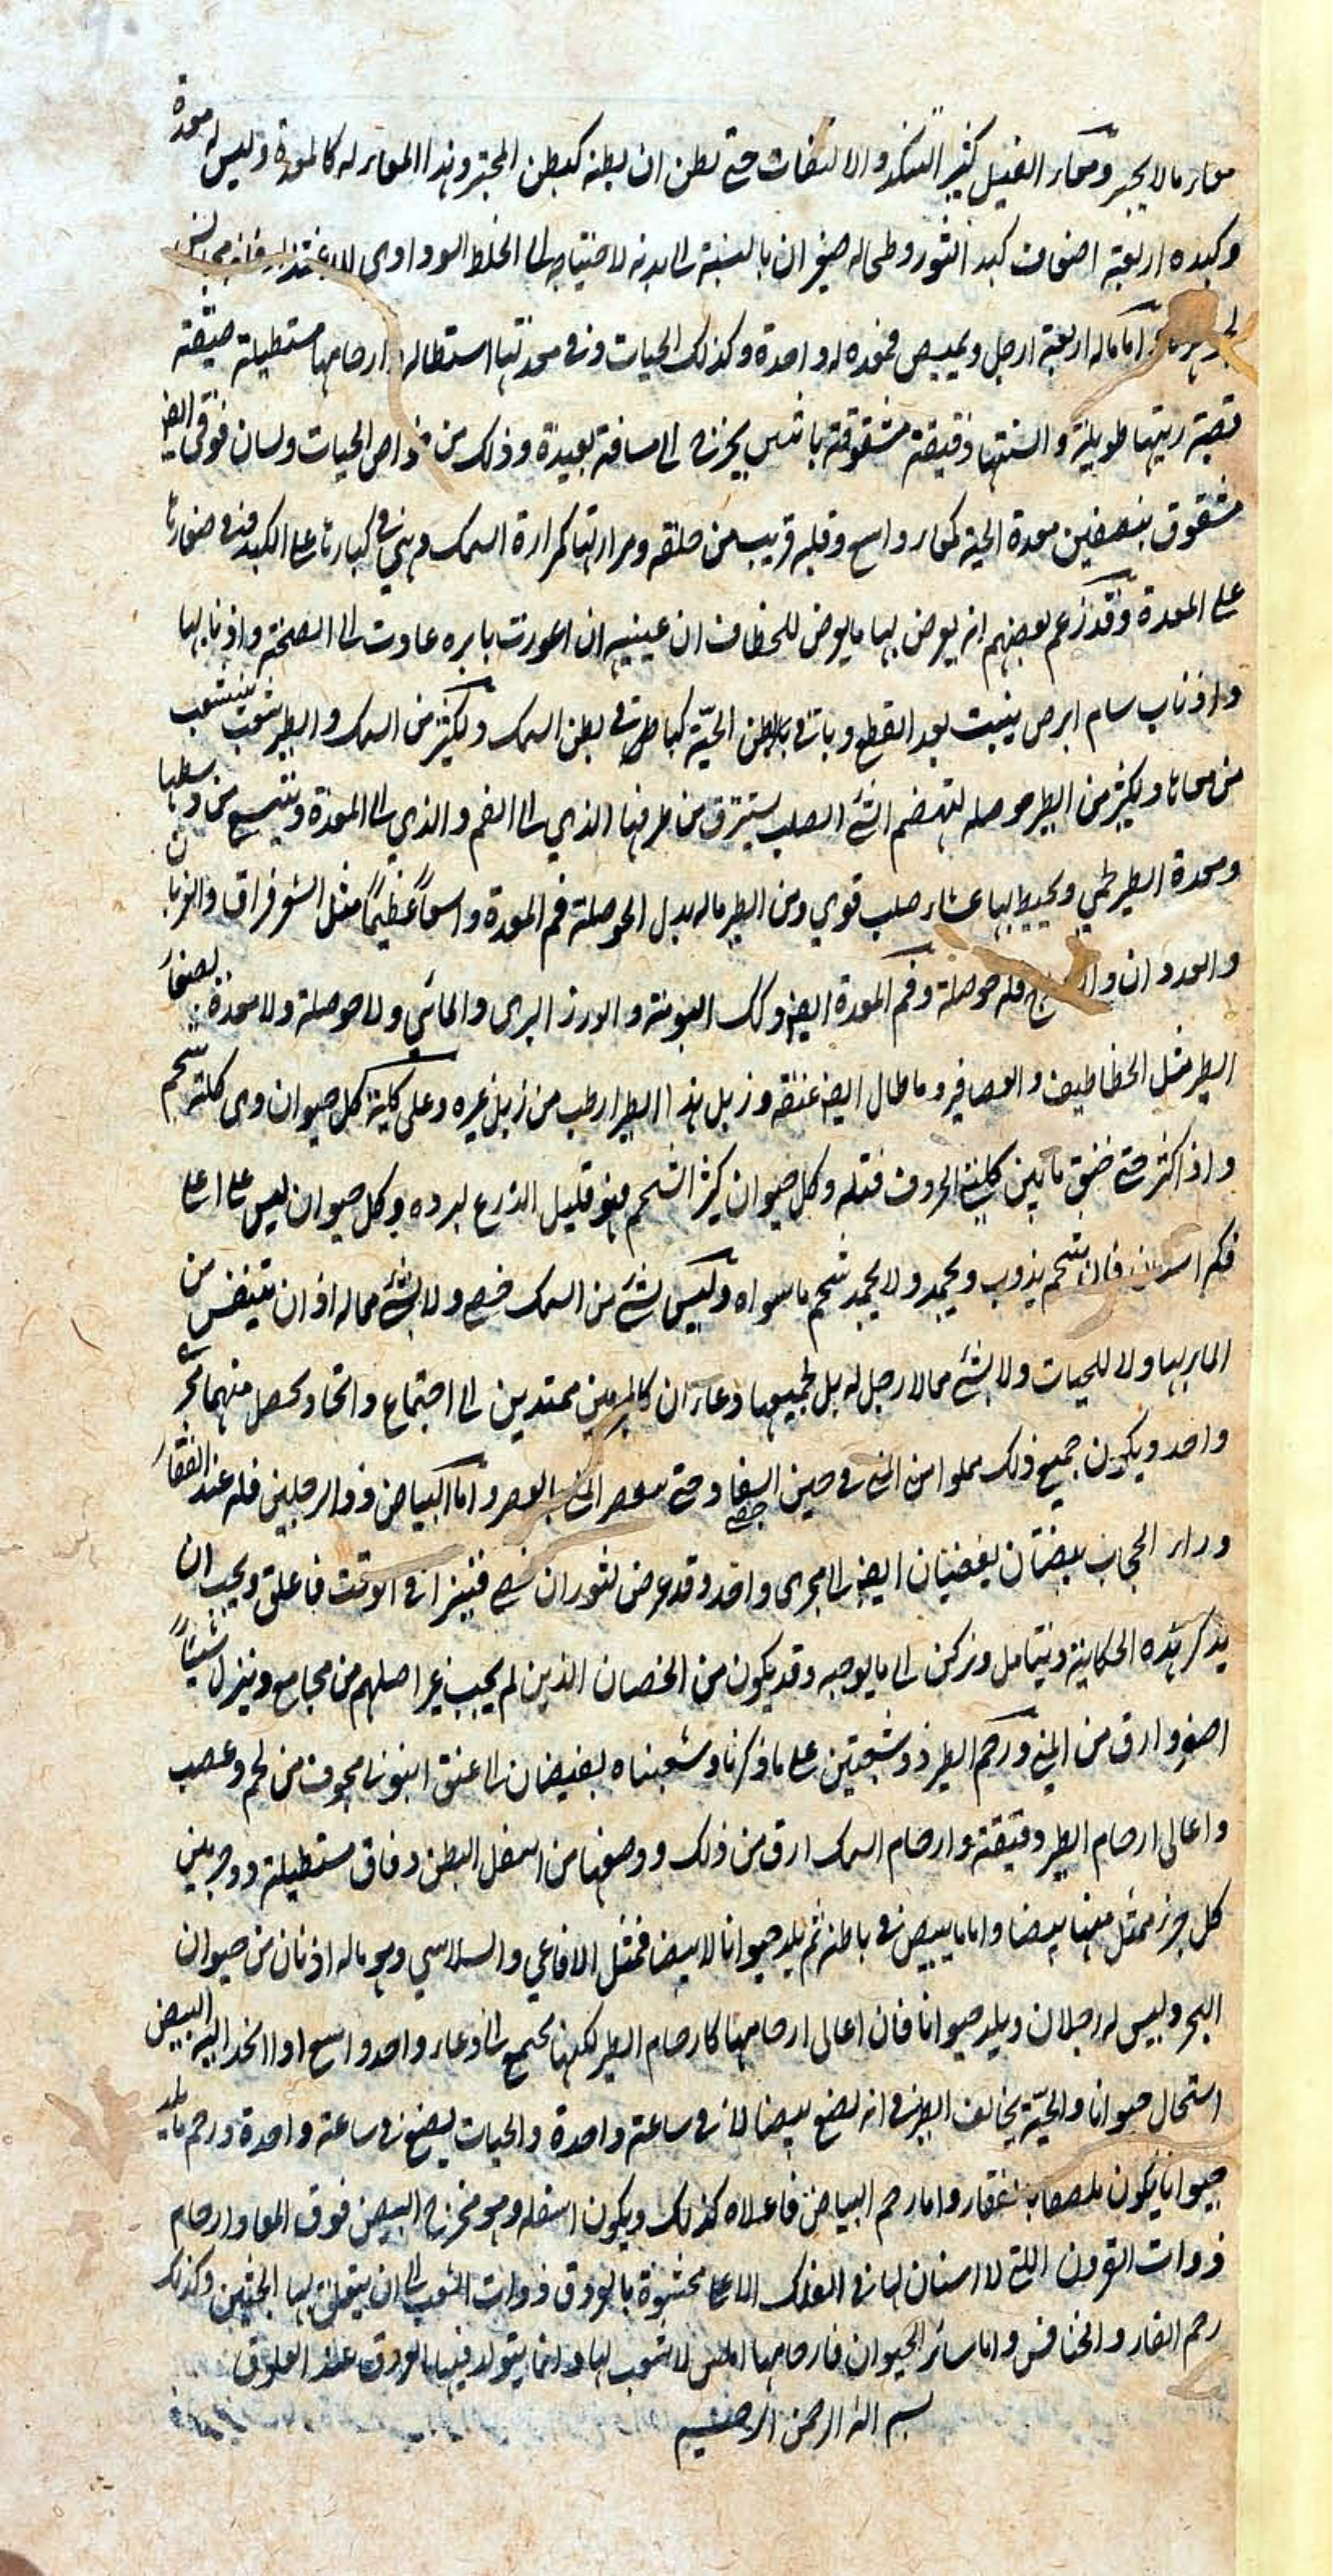 معاء ما لا يجتر ومعاء الفيل كثير التنكد والالتفات حتى يظن ان بطنه كبطن المجتر وهذا المعاء له كالمعدة وليس له معدة
وكبده اربعة اضعاف كبد الثور وطحاله صغير ان بالنسبة الى بدنه لاحتياجه الى الخلط السوداوي للاغتذاء فانه مجانس
اما ماله اربعة ارجل ويبيض فمعدته له واحدة وكذلك الحيات وفي معدتها استطالة وارحامها مستطيلة ضيقة
قصبة ريتها طويلة والسنتها دقيقة مشقوقة باثنين يخرج الى مسافة بعيدة وذلك من خواص الحيات ولسان فوقى ايضا
مشقوق بنصفين معدة الحية كمعاء واسع وقلبه قريب من حلقه ومرارتها كمرارة السمك وهي في كبارها على الكبد وفي صغارها
على المعدة وقد زعم بعضهم انه يعرض لها ما يعرض للخطاف ان عينيه ان اعورت بابره عادت الى الصحة واذنابها
واذناب سام ابرص ينبت بعد القطع وباتى في باطن الحية كما طرت في بطن السمك ولكثير من السمك والطير شعب ينشعب
من معاها ولكثير من الطير حوصله لتهضم الشئ الصلب يسترق من طرفها الذي الى الفم والذي الى المعدة وتتسع من وسطها
ومعدة الطير لحمي ويحيط بها غشاء صلب قوي ومن الطير ماله بدل الحوصلة فم المعدة واسعا عظيما مثل الشرفراق والغربان
والعدوان وا فله حوصلة وفم المعدة ايضا وكك البومة والورز البرى والمائي ولا حوصلة ولا معدة لصغار
الطير مثل الخطاطيف والعصافير وما طال ايضا عنقه وزبل هذا الطير ارطب من زبل غيره وعلى كلية كل حيوان ذى كلية شحم
واذا كثر حتى خنق ما بين كليتي الخروف قتله وكل حيوان كثير الشحم فهو قليل الذرع لبرده وكل حيوان ليس على اعلى
فكه اسنان فان شحمه يذوب ويجمد ولا يجمد شحم ما سواه وليس لشئ من السمك خصى ولا لشئ مما له اذان تتنفس من
الماء بها ولا للحيات ولا لشئ مما لا رجل له بل لجميعها وعاءان كالبربخين ممتدين الى اجتماع واتحاد يحصل منهما مجر
واحد ويكون جميع ذلك مملوا من المنى في حين السفاد حتى يعصر المنى بالعصر واما البياض ذو الرجلين فله عند الفقار
وراء الحجاب بيضتان يفضيان ايضا الى مجرى واحد وقد عرض لثور ان خصى فنيز ا في الوقت فاعلق ويجب ان
يذكر هذه الحكاية ويتامل ونركن الى ما يوجبه وقد يكون من الخصيان الذين لم يجب غراصلهم من يجامع وينزل شيئا
اصغر وارق من المنى ورحم الطير ذو شعبتين على ما ذكرنا وشعبتاه يفيضان الى عنق انبوبها مجوف من لحم وعصب
واعالى ارحام الطير دقيقة وارحام السمك ارق من ذلك ووضعها من اسفل البطن دقاق مستطيلة ذو جزئين
كل جزء ممثل منها بيضا واما ما يبيض في باطنه ثم يلد حيوانا لا بيضا فمثل الافاعي والسلاسي وهو ماله اذنان من حيوان
البحر وليس له رجلان ويلد حيوانا فان اعالى ارحامها كارحام الطير لكنها تجتمع الى وعاء واحد واسع اذا انحدر اليه البيض
استحال حيوانا والحية يخالف الطير في انه يضع بيضا لا في ساعة واحدة والحيات يضع في ساعة واحدة ورحم ما يلد
حيوانا يكون ملصقا بفقار واما رحم البياض فاعلاه كذلك ويكون اسفله وهو مخرج البيض فوق المعاء وارحام
ذوات القرون اللتى لا اسنان لها في الفك الاعلى محشوة بالعروق ذوات الشعب الى ان يتعلق بها الجنين وكذلك
رحم الفار والخنافس واما سائر الحيوان فارحامها املس لا شعب لها وانما يتولد فيها العروق عند العلوق
بسم الله الرحمن الرحيم